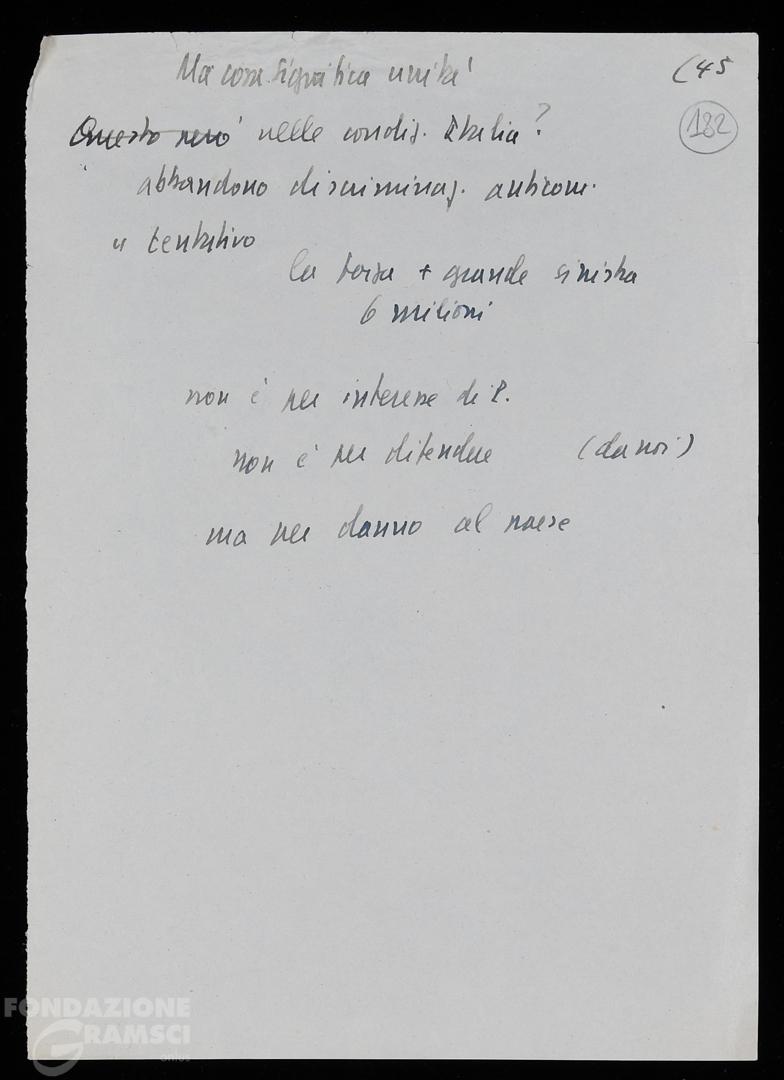 Ma cosa significa unità
(45
182
Questo però nelle condiz. Italia?
abbandono discriminaz. anticom.
" tentativo
la forza + grande sinistra
6 milioni
non è per interesse di P.
non è per difendere (da noi)
ma per danno al paese
FONDAZIONE
GRAMSCI
onlus